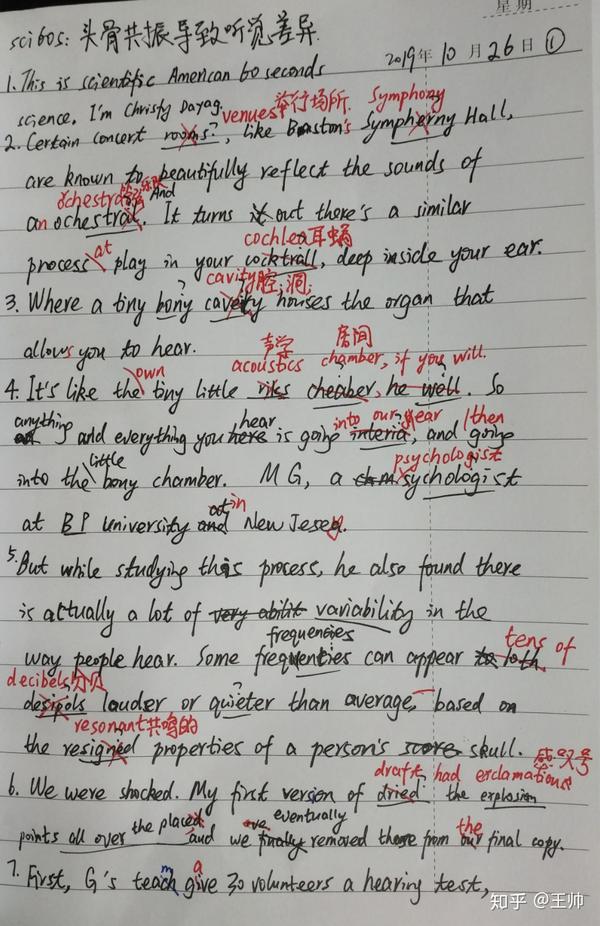 星期
sci60s: 头骨共振导致听觉差异.
2019年 10 月 26 日 ①
1. This is scientific American 60 seconds
science, I'm Christy Dayag.
venues 举行场所. Symphony
2. Certain concert rooms?, like Boston's Symphierny Hall,
are known to beautifully reflect the sounds of
orchestra 乐队 And
an ochestral. It turns out there's a similar
at cochlea 耳蜗
process play in your cocktrall, deep inside your ear.
cavity 腔, 洞;
3. Where a tiny bony cavety houses the organ that
allows you to hear.
声学 房间
own acoustics chamber, if you will.
4. It's like the tiny little cheaber, he well. So
anything hear into our ear then
and everything you here is going interia, and going
little psychologist
into the bony chamber. MG, a sychologist
in
at BP University and New Jesey.
5. But while studying this process, he also found there
is actually a lot of very abilit variability in the
frequencies tens of
way people hear. Some frequenties can appear to loth
decibels 分贝
desipols louder or quieter than average, based on
resonant 共鸣的
the resigned properties of a person's score skull.
感叹号
draft had exclamations
6. We were shocked. My first version of dried the explosion
the place eventually the
points all over and we finally removed them from our final copy.
m a
7. First, G's teach give 30 volunteers a hearing test,
知乎 @王帅